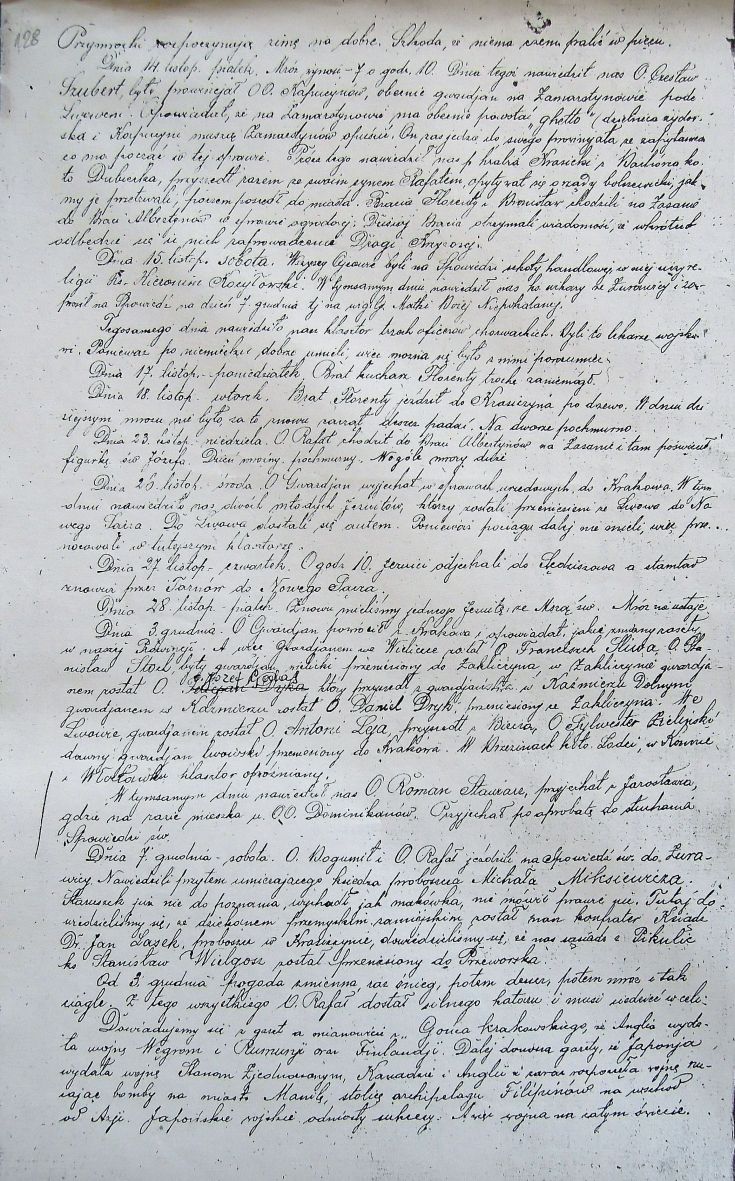 128
Przymrozki rozpoczynają zimę na dobre. Szkoda, że niema czem palić w piecu.
Dnia 14 listop. piątek. Mróz żywszy -7 o godz. 10. Dnia tegoż nawiedził nas O. Czesław
Szubert, były prowincjał OO. Kapucynów, obecnie gwardjan na Zamarstynowie pode
Lwowem. Opowiadał, że na Zamarstynowie ma obecnie powstać "ghetto" (dzielnica żydow-
ska i Kapucyni muszą Zamarstynów opuścić. On zaś jedzie do swego prowincjała ze zapytaniem
co ma począć w tej sprawie. Prócz tego nawiedził nas p. hrabia Krasicki z Bachorca ko-
ło Dubiecka, przyszedł razem ze swoim synem Rafałem, opytywał się o rządy bolszewickie, jak-
my je przetrwali, poczem poszedł do miasta. Bracia Florenty i Bronisław chodzili na Zasanie
do Braci Albertynów w sprawie ogrodowej. Dzisiaj Bracia otrzymali wiadomość, że wkrótce
odbędzie się u nich zaprowadzenie Drogi Krzyżowej.
Dnia 15. listop. sobota. Wszyscy Ojcowie byli na Spowiedzi szkoły handlowej, w niej uczy re-
ligii Ks. Hieronim Kocyłowski. W tymsamym dniu nawiedził nas ks. wikary ze Żurawicy i za-
prosił na Spowiedź na dzień 7 grudnia tj na wigilję Matki Bożej Niepokalanej.
Tegosamego dnia nawiedziło nasz klasztor trzech oficerów chorwackich. Byli to lekarze wojsko-
wi. Ponieważ po niemiecku dobrze umieli, więc można się było z nimi porozumieć.
Dnia 17. listop. - poniedziałek. Brat kucharz Florenty trochę zaniemógł.
Dnia 18. listop. wtorek. Brat Florenty jeździł do Krasiczyna po drzewo. W dniu dzi
siejszym mrozu nie było, za to znowu zaczął deszcz padać. Na dworze pochmurno.
Dnia 23. listop. niedziela. O. Rafał chodził do Braci Albertynów na Zasanie i tam poświęcił
figurkę św. Józefa. Dzień mroźny, pochmurny. Wogóle mrozy duże
Dnia 26. listop. - środa. O. Gwardjan wyjechał w sprawach urzędowych, do Krakowa. W tym
dniu nawiedziło nas dwóch młodych Jezuitów, którzy zostali przeniesieni ze Lwowa do No
wego Sącza. Do Lwowa dostali się autem. Ponieważ pociągu dalej nie mieli, więc prze-
nocowali w tutejszym klasztorze.
Dnia 27. listop. - czwartek. O godz 10. Jezuici odjechali do Sędziszowa a stamtąd
znowu przez Tarnów do Nowego Sącza.
Dnia 28. listop. - piątek. Znowu mieliśmy jednego Jezuitę ze Mszą św. Mróz nie ustaje
Dnia 3. grudnia. O Gwardjan powrócił z Krakowa i opowiadał, jakie zmiany zaszły
w naszej Prowincji. A więc gwardjanem we Wieliczce został O. Franciszek Śliwa, O. Sta-
nisław Stoch były gwardjan wielicki przeniesiony do Zakliczyna, w Zakliczynie gwardja-
O. Józef Cogiel
nem został O. Dryka który przyszedł z gwardjaństwa w Kaźmierzu Dolnym
gwardjanem w Kaźmierzu został O. Daniel Dryk, przeniesiony ze Zakliczyna. We
Lwowie, gwardjanem został O. Antoni Leja, przyszedł z Biecza, O Sylwester Zieliński
dawny gwardjan lwowski przeniesiony do Krakowa. W Brzezinach koło Łodzi, w Koninie
i Włocławku klasztor opróżniony.
W tymsamym dniu nawiedził nas O. Roman Stawarz, przyjechał z Jarosławia,
gdzie na razie mieszka u OO. Dominikanów. Przyjechał po aprobatę do słuchania
Spowiedzi św.
Dnia 7. grudnia - sobota. O. Bogumił i O. Rafał jeździli na Spowiedź św. do Żura-
wicy. Nawiedzili przytem umierającego księdza proboszcza Michała Miksiewicza.
Staruszek już nie do poznania, wychudł jak makówka, nie mówił prawie nic. Tutaj do-
wiedzieliśmy się, że dziekanem przemyskim zamiejskim został nasz konfrater Ksiądz
Dr. Jan Łasek, proboszcz w Krasiczynie, dowiedzieliśmy się, że nas sąsiad z Pikulic
ks Stanisław Wielgosz został przeniesiony do Przeworska.
Od 3. grudnia pogoda zmienna, raz śnieg, potem deszcz, potem mróz i tak
ciągle. Z tego wszystkiego O. Rafał dostał silnego kataru i musi siedzieć w celi.
Dowiadujemy się z gazet a mianowicie z Gońca Krakowskiego, że Anglia wyda-
ła wojnę Węgrom i Rumunji oraz Finlandji. Dalej donoszą gazety, że Japonja
wydała wojnę Stanom Zjednoczonym, Kanadzie i Anglii i zaraz rozpoczęła wojnę rzu-
cając bomby na miasto Manilę, stolicę archipelagu Filipinów na wschód
od Azji. Japońskie wojska odniosły sukcesy. A więc wojna na całym świecie.